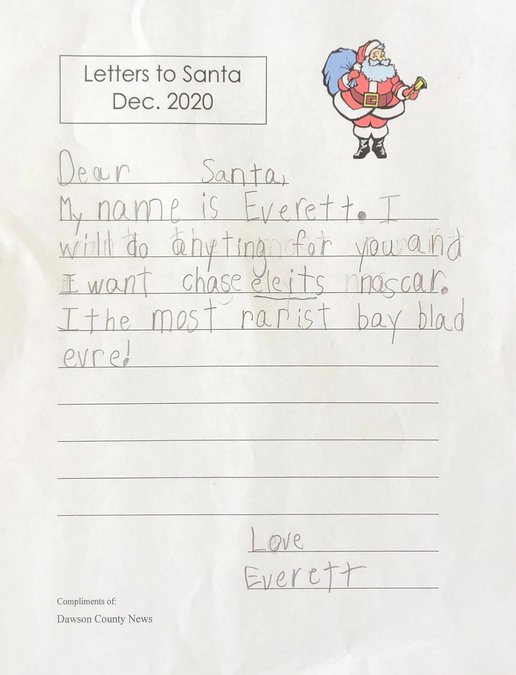 Letters to Santa
Dec. 2020
Dear Santa,
My name is Everett. I
will do anyting for you and
I want chase eleits nascar.
I the most rarist bay blad
evre!
Love
Everett
Compliments of:
Dawson County News